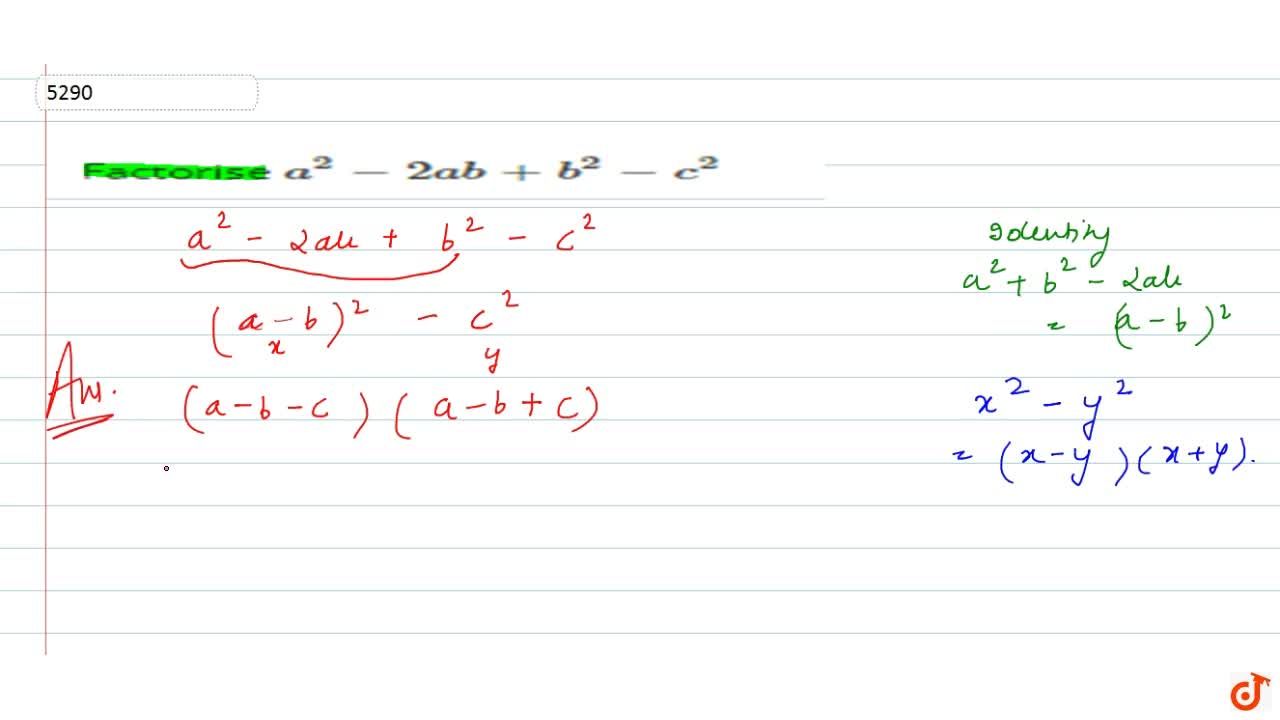 5290
Factorise a² − 2ab + b² − c²
a² - 2ab + b² - c²
(a - b)² - c²
x y
Ans. (a - b - c) (a - b + c)
Identity
a² + b² - 2ab
= (a - b)²
x² - y²
= (x - y) (x + y).